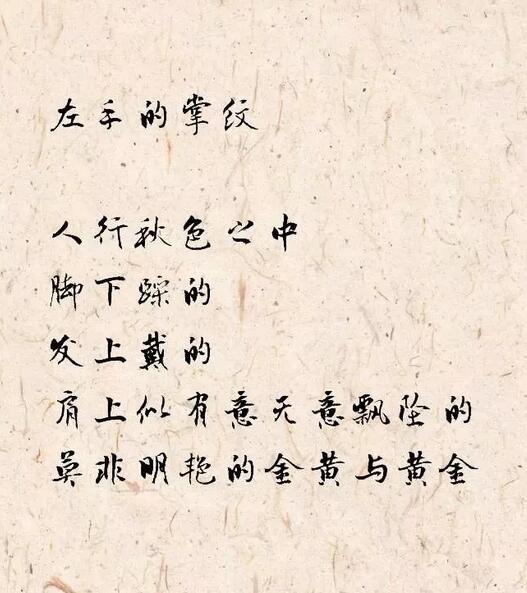 左手的掌纹
人行秋色之中
脚下踩的
发上戴的
肩上似有意无意飘坠的
莫非明艳的金黄与黄金